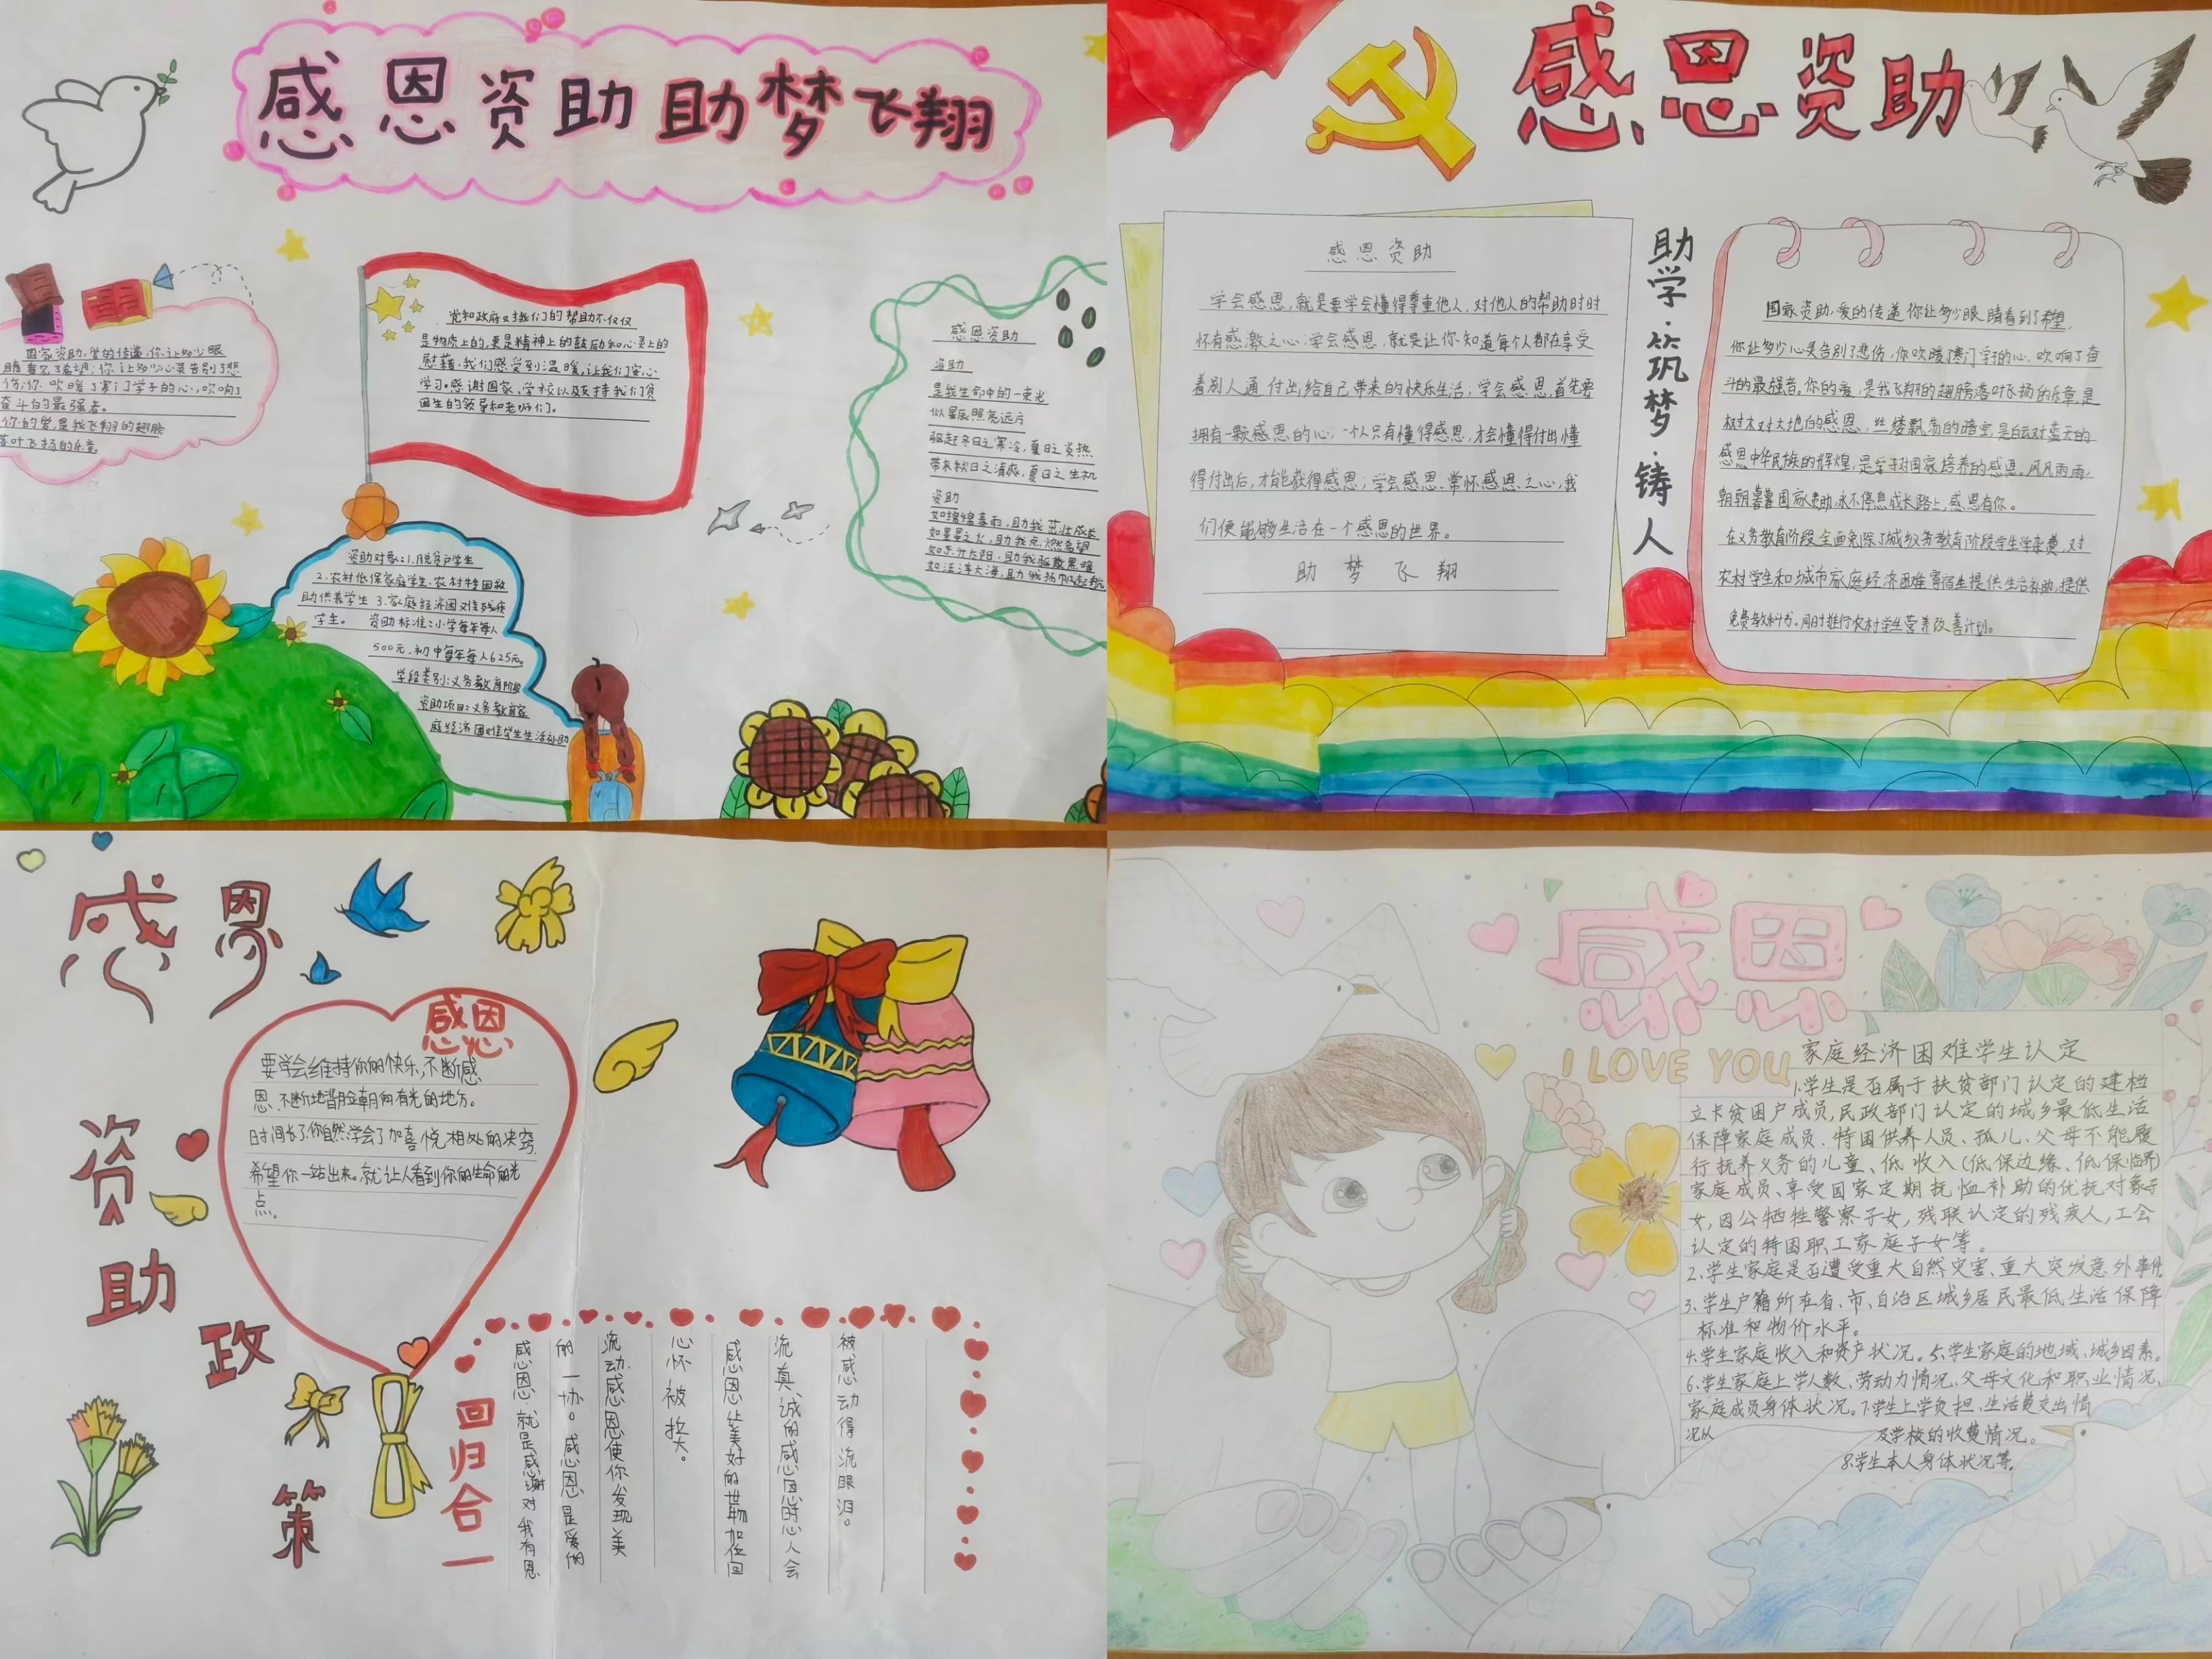 感恩资助助梦飞翔
国家资助,爱的传递,你让多少眼
睛看见了希望;你让多少心灵告别了悲
伤;你吹暖了寒门学子的心,吹响了
奋斗的最强者。
你的爱,是我飞翔的翅膀
落叶飞扬的乐章。
党和政府对我们的帮助不仅仅
是物质上的,更是精神上的鼓励和心灵上的
慰藉,我们感受到温暖,让我们安心
学习。感谢国家、学校以及支持我们贫
困生的领导和老师们。
资助对象:1.脱贫户学生
2.农村低保家庭学生、农村特困救
助供养学生 3.家庭经济困难残疾
学生。 资助标准:小学每年每人
500元,初中每年每人625元。
学段类别:义务教育阶段
资助项目:义务教育家
庭经济困难学生生活补助
感恩资助
资助
是我生命中的一束光
似星辰照亮远方
驱赶冬日之寒冷,夏日之炎热
带来秋日之清爽,夏日之生机
资助
如绵绵春雨,助我茁壮成长
如星星之火,助我点燃希望
如冉冉太阳,助我驱散黑暗
如汪洋大海,助我扬帆起航
感恩资助
感恩资助
学会感恩,就是要学会懂得尊重他人,对他人的帮助时时
怀有感激之心;学会感恩,就是让你知道每个人都在享受
着别人通付出给自己带来的快乐生活;学会感恩,首先要
拥有一颗感恩的心,一个人只有懂得感恩,才会懂得付出懂
得付出后,才能获得感恩;学会感恩、常怀感恩之心,我
们便能够生活在一个感恩的世界。
助梦飞翔
助学·筑梦·铸人
国家资助,爱的传递你让多少眼睛看到了希望,
你让多少心灵告别了悲伤,你吹暖了寒门学子的心,吹响了奋
斗的最强音。你的爱,是我飞翔的翅膀落叶飞扬的乐章,是
树木对大地的感恩,丝缕飘荡的晴空,是白云对蓝天的
感恩中华民族的辉煌,是学子对国家培养的感恩。风风雨雨,
朝朝暮暮国家资助,永不停息成长路上,感恩有你。
在义务教育阶段全面免除了城乡义务教育阶段学生学杂费,对
农村学生和城市家庭经济困难寄宿生提供生活补助,提供
免费教科书。同时推行农村学生营养改善计划。
感恩
资助政策
感恩
要学会维持你的快乐,不断感
恩、不断地背阴朝向有光的地方。
时间长了,你自然学会了加喜悦相处的决窍,
希望你一站出来。就让人看到你的生命的光
点。
回归合一
感恩,就是感谢对我有恩
的一切。感恩是爱的
流动,感恩使你发现美
心怀被扩大。
感恩让美好的世物加倍回
流真诚的感恩时心人会
被感动得流眼泪。
感恩
I LOVE YOU
家庭经济困难学生认定
1.学生是否属于扶贫部门认定的建档
立卡贫困户成员,民政部门认定的城乡最低生活
保障家庭成员、特困供养人员、孤儿、父母不能履
行抚养义务的儿童、低收入(低保边缘、低保临界)
家庭成员、享受国家定期抚恤补助的优抚对象子
女,因公牺牲警察子女,残联认定的残疾人,工会
认定的特困职工家庭子女等。
2.学生家庭是否遭受重大自然灾害、重大突发意外事件。
3.学生户籍所在省、市、自治区城乡居民最低生活保障
标准和物价水平。
4.学生家庭收入和资产状况。5.学生家庭的地域、城乡因素。
6.学生家庭上学人数、劳动力情况、父母文化和职业情况、
家庭成员身体状况。7.学生上学负担、生活费支出情
况以及学校的收费情况。
8.学生本人身体状况等。